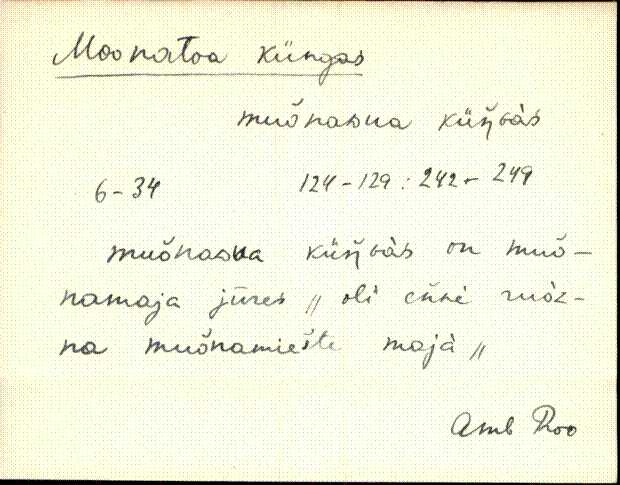 Moonatoa küngas
muõnaɒua küŋ̆ɢàs
6-34 124-129 : 242-249
muõnaɒua küŋ̆ɢàs on muõ-
namaja jūres // oli eňnè
na muõnamiešte majà //
Amb Roo